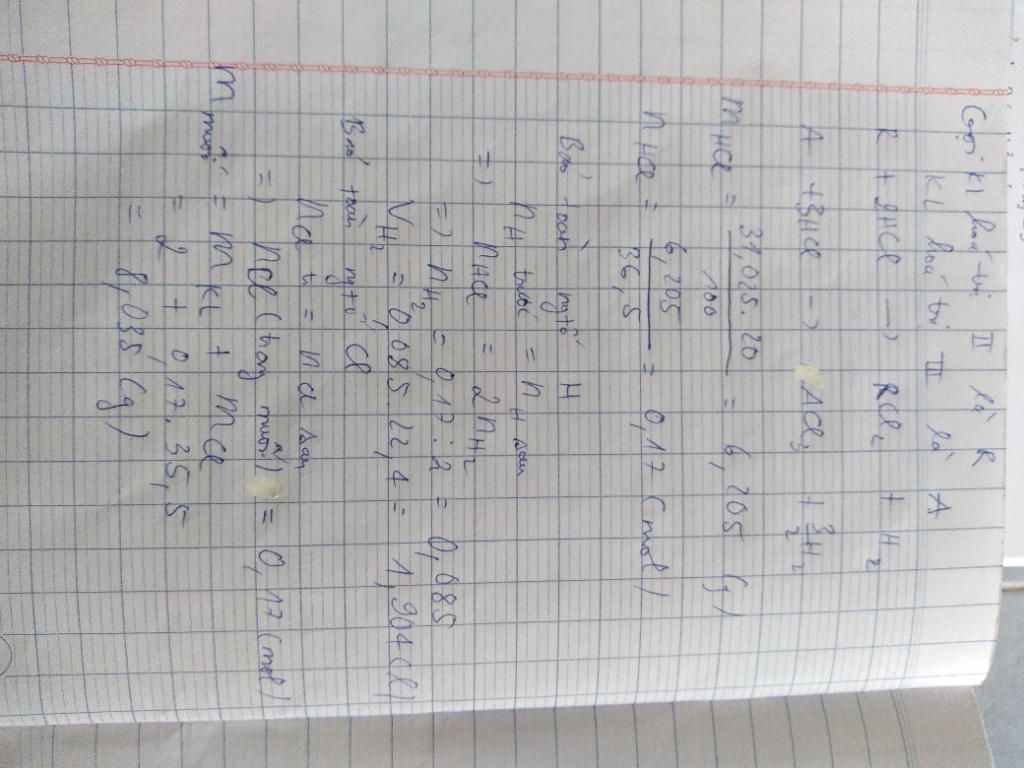 Gọi kl hoá trị II là R
kl hoá trị III là A
R + 2HCl -> RCl2 + H2
A + 3HCl -> ACl3 + 3/2 H2
mHCl = 31,025.20 / 100 = 6,205 (g)
nHCl = 6,205 / 36,5 = 0,17 (mol)
Bảo toàn ngtố H
nH trước = nH sau
=> nHCl = 2nH2
=> nH2 = 0,17 : 2 = 0,085
VH2 = 0,085.22,4 = 1,904 (l)
Bảo toàn ngtố Cl
nCl tr = nCl sau
=> nCl (trong muối) = 0,17 (mol)
m muối = m kl + mCl
= 2 + 0,17.35,5
= 8,035 (g)